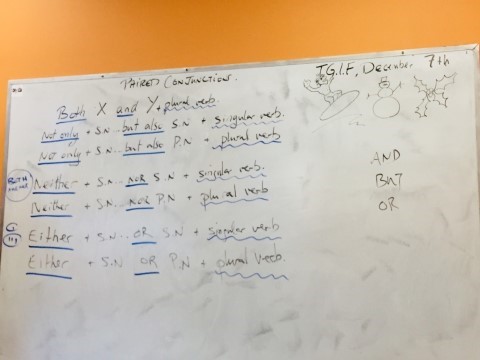 PAIRED CONJUNCTIONS.
T.G.I.F, December 7th
Both X and Y + plural verb.
Not only + S.N... but also S.N + singular verb.
Not only + S.N... but also P.N + plural verb
BOTH
Neither + S.N... NOR S.N + singular verb.
Neither + S.N... NOR P.N + plural verb
Either + S.N... OR S.N + singular verb
Either + S.N OR P.N + plural verb.
AND
BUT
OR